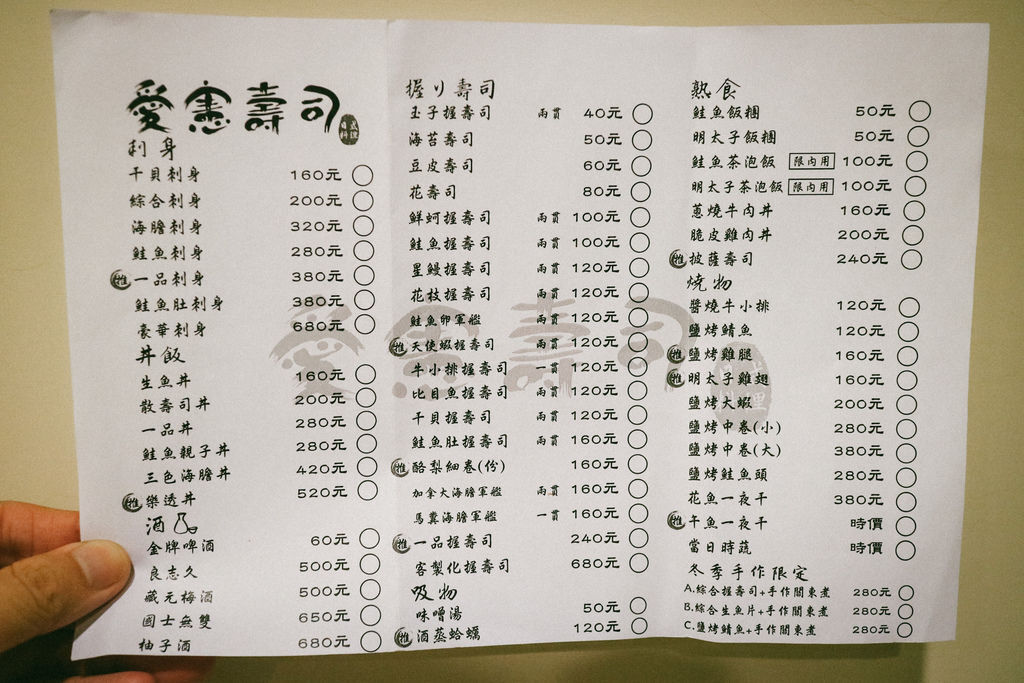 愛憲壽司
日式料理
刺身
干貝刺身 160元
綜合刺身 200元
海膽刺身 320元
鮭魚刺身 280元
推 一品刺身 380元
鮭魚肚刺身 380元
豪華刺身 680元
丼飯
生魚丼 160元
散壽司丼 200元
一品丼 280元
鮭魚親子丼 280元
三色海膽丼 420元
推 樂透丼 520元
酒
金牌啤酒 60元
良志久 500元
藏元梅酒 500元
國士無雙 650元
柚子酒 680元
握り壽司
玉子握壽司 兩貫 40元
海苔壽司 50元
豆皮壽司 60元
花壽司 80元
鮮蚵握壽司 兩貫 100元
鮭魚握壽司 兩貫 100元
星鰻握壽司 兩貫 120元
花枝握壽司 兩貫 120元
鮭魚卵軍艦 兩貫 120元
推 天使蝦握壽司 兩貫 120元
牛小排握壽司 一貫 120元
比目魚握壽司 兩貫 120元
干貝握壽司 兩貫 120元
鮭魚肚握壽司 兩貫 160元
推 酪梨細卷(份) 160元
加拿大海膽軍艦 兩貫 160元
馬糞海膽軍艦 一貫 160元
推 一品握壽司 240元
客製化握壽司 680元
吸物
味噌湯 50元
推 酒蒸蛤蠣 120元
熟食
鮭魚飯糰 50元
明太子飯糰 50元
鮭魚茶泡飯 限內用 100元
明太子茶泡飯 限內用 100元
蔥燒牛肉丼 160元
脆皮雞肉丼 200元
推 披薩壽司 240元
燒物
醬燒牛小排 120元
鹽烤鯖魚 120元
推 鹽烤雞腿 160元
推 明太子雞翅 160元
鹽烤大蝦 200元
鹽烤中卷(小) 280元
鹽烤中卷(大) 380元
鹽烤鮭魚頭 280元
花魚一夜干 380元
推 午魚一夜干 時價
當日時蔬 時價
冬季手作限定
A.綜合握壽司+手作關東煮 280元
B.綜合生魚片+手作關東煮 280元
C.鹽烤鯖魚+手作關東煮 280元